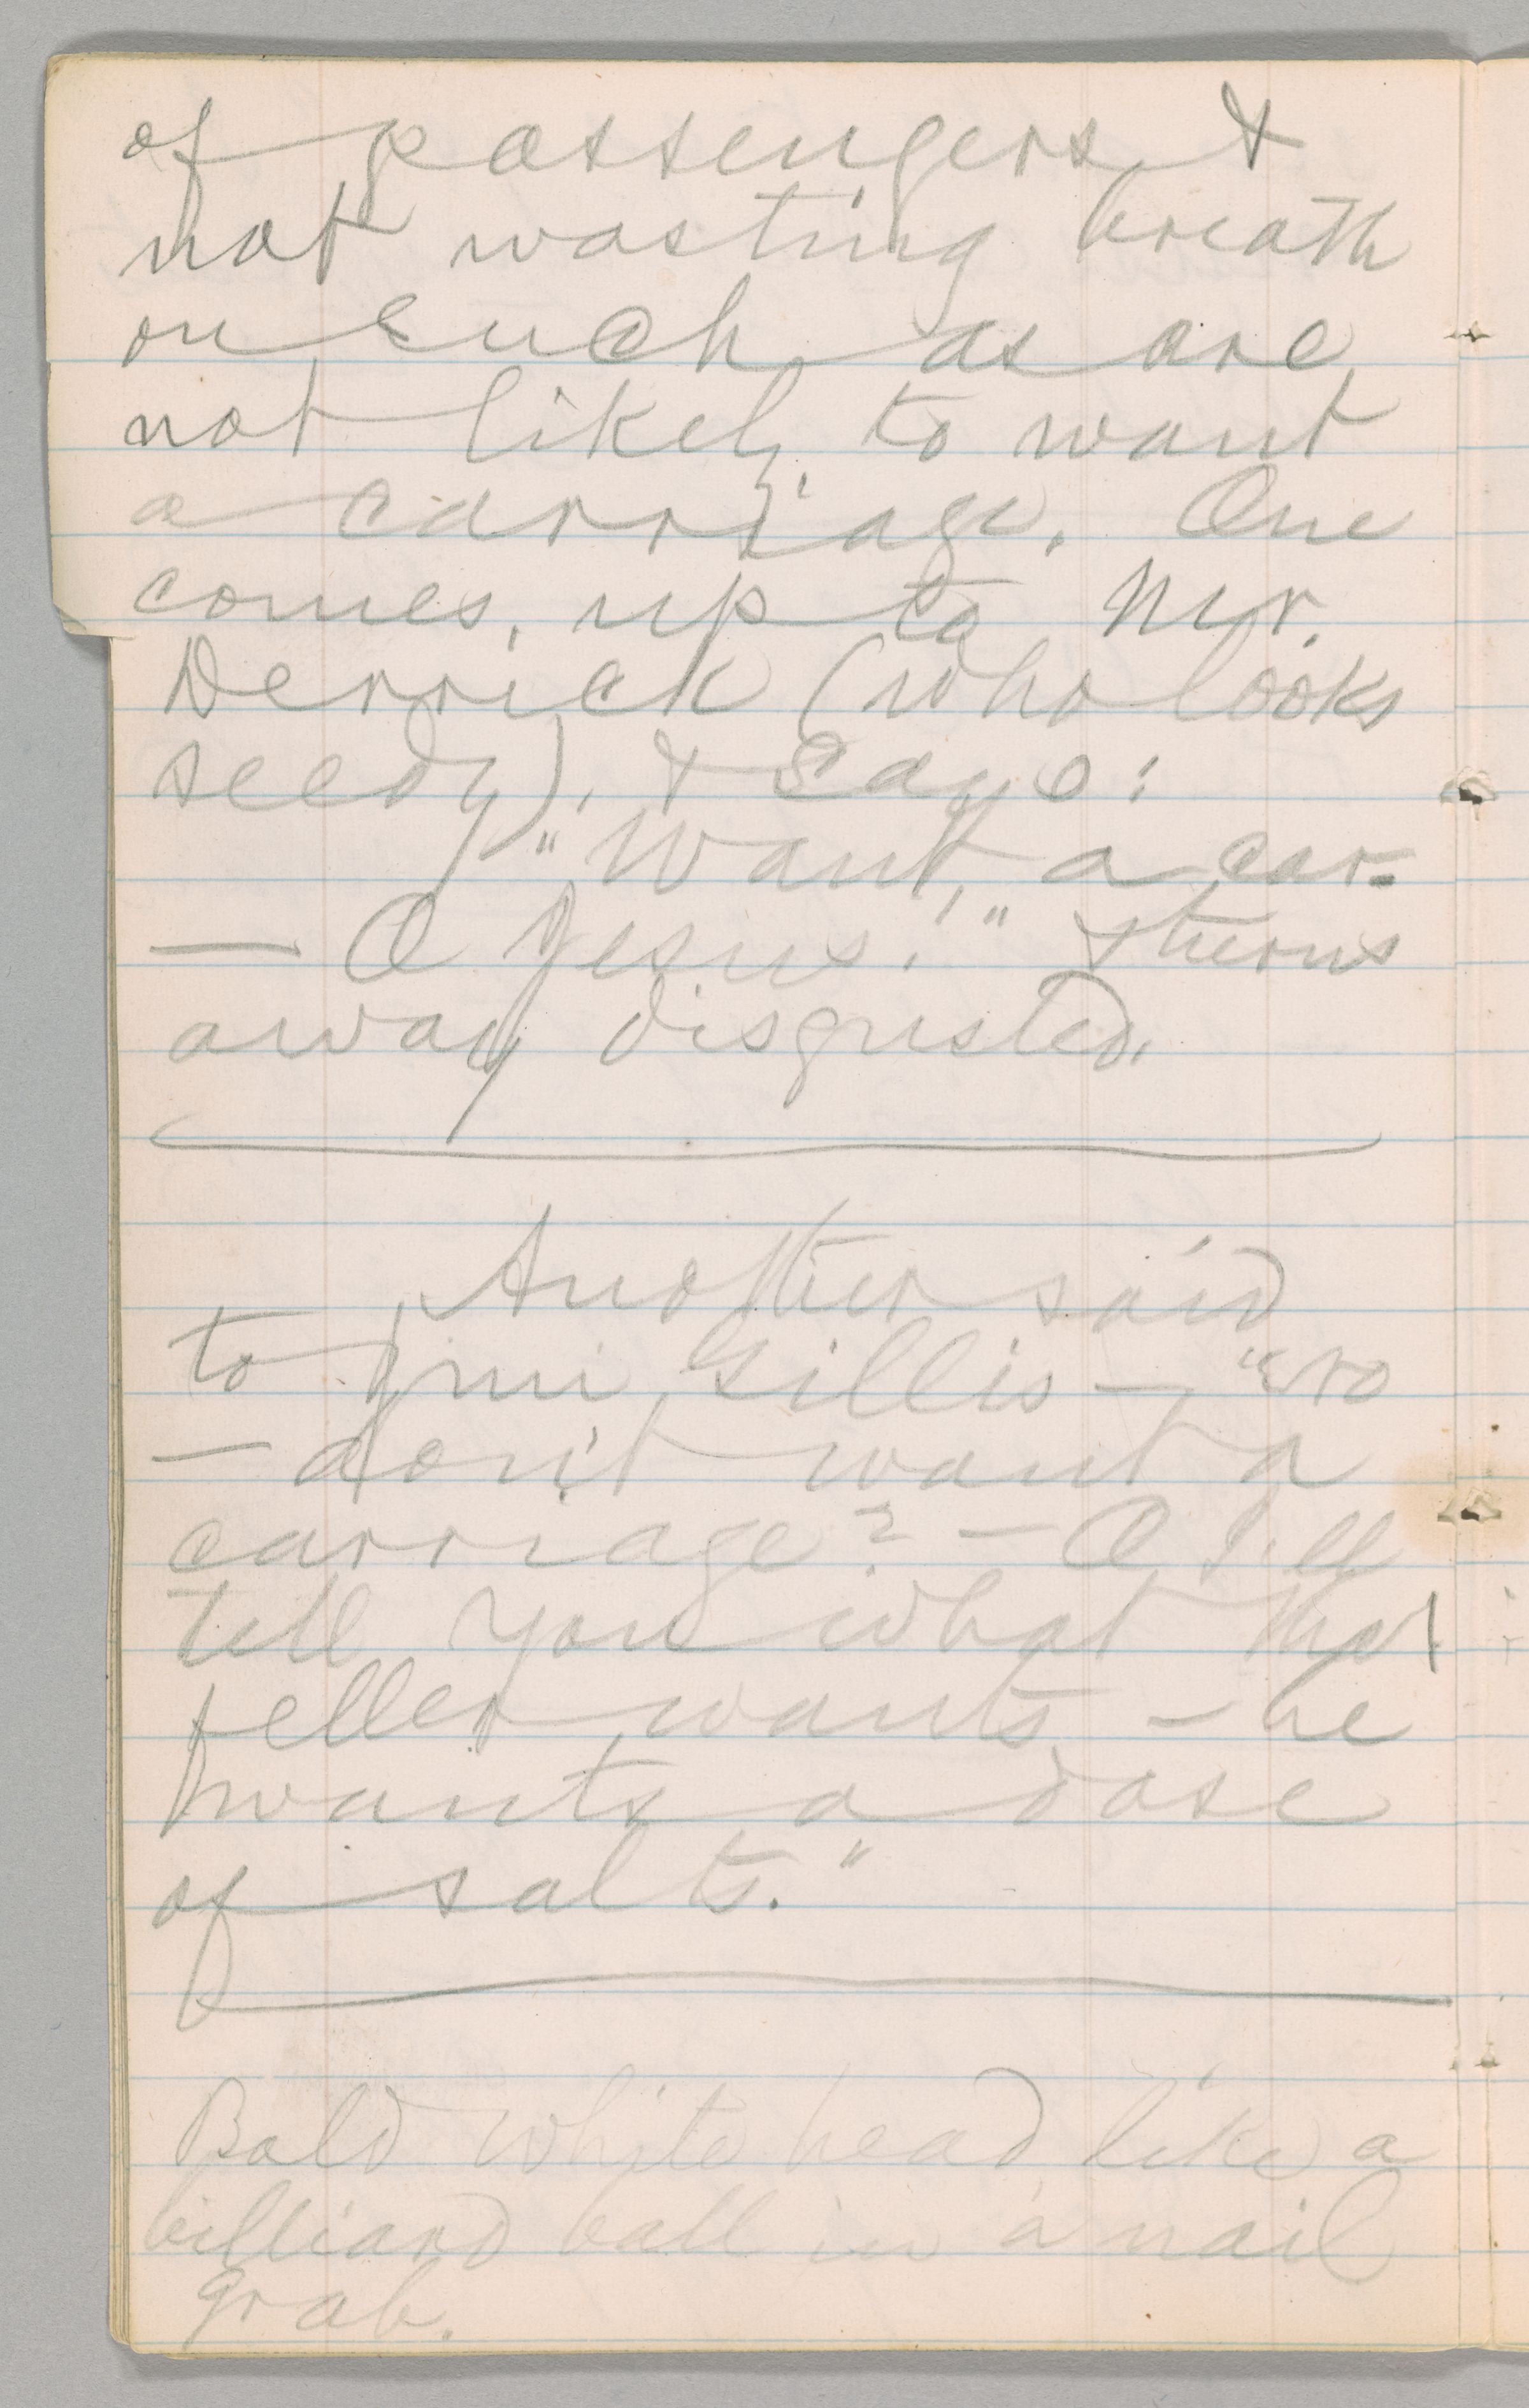 of passengers, &
not wasting breath
on such as are
not likely to want
a carriage. One
comes up to Mr.
Derrick (who looks
seedy), & says:
"Want a car-
— O Jesus!" & turns
away disgusted.
Another said
to Jim Gillis — "No
— don't want a
carriage? — O I'll
tell you what that
feller wants — he
wants a dose
of salts."
Bald white head like a
billiard ball in a nail
grab.